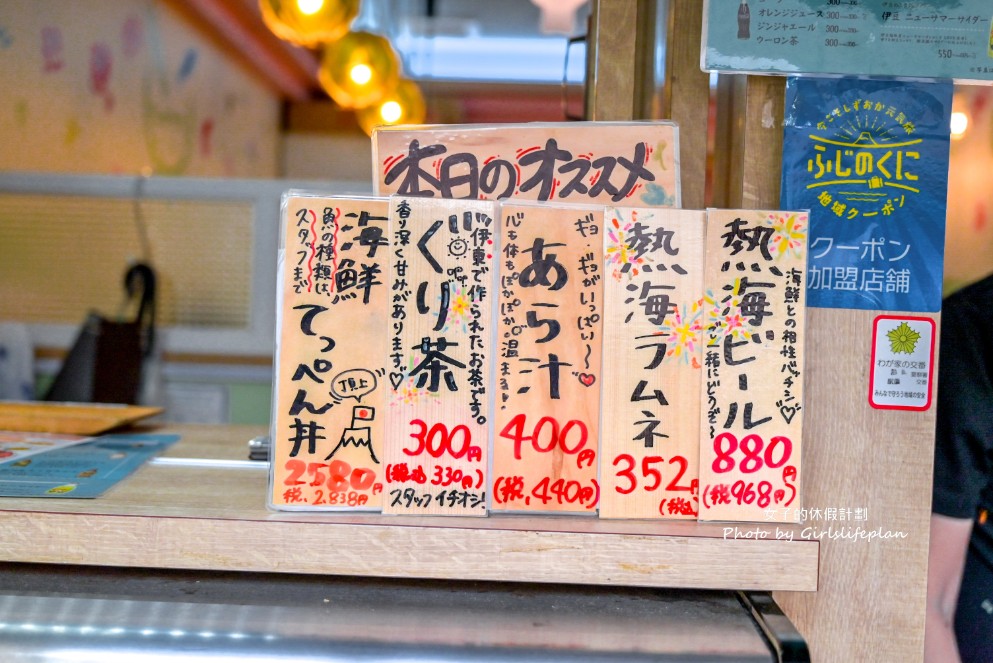 オレンジジュース 300
ジンジャエール 300
ウーロン茶 300
伊豆 ニューサマーサイダー
550
本日のオススメ
海鮮てっぺん丼
魚の種類は、
スタッフまで
頂上
2580円
税.2,838円
伊東で作られたお茶です。
ぐり茶
香り深く甘みがあります♡
300円
(税込 330円)
スタッフイチオシ!
ギョ・ギョがいっぱい〜♡
あら汁
心も体もぽかぽか。温まる!
400円
(税.440円)
熱海ラムネ
352円
(税込)
海鮮との相性バッチシ♡
熱海ビール
ご一緒にどうぞ〜
880円
(税968円)
今こそしずおか元気旅
ふじのくに
地域クーポン
クーポン
加盟店舗
わが家の交番
みんなで守ろう地域の安全
女子的休假計劃
Photo by Girlslifeplan